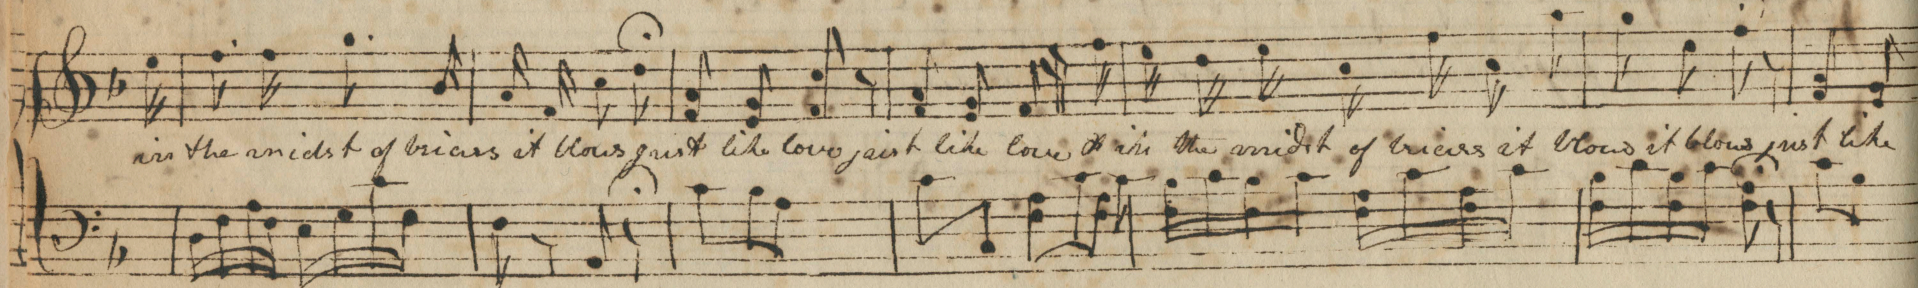 in the midst of briars it blows just like love just like love & in the midst of briars it blows it blows just like